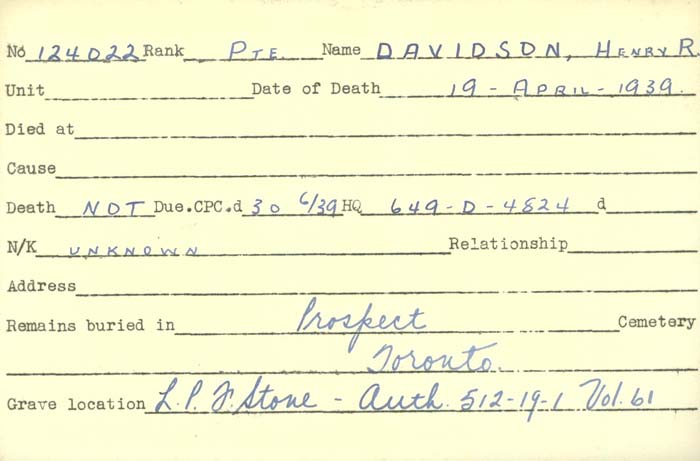 No 124022 Rank PTE. Name DAVIDSON, HENRY R.
Unit Date of Death 19 - APRIL - 1939.
Died at
Cause
Death NOT Due.CPC.d 30 6/39 HQ 649-D-4824 d
N/K UNKNOWN Relationship
Address
Remains buried in Prospect Cemetery
Toronto.
Grave location L.P.F. Stone - Auth. 512-19-1 Vol. 61